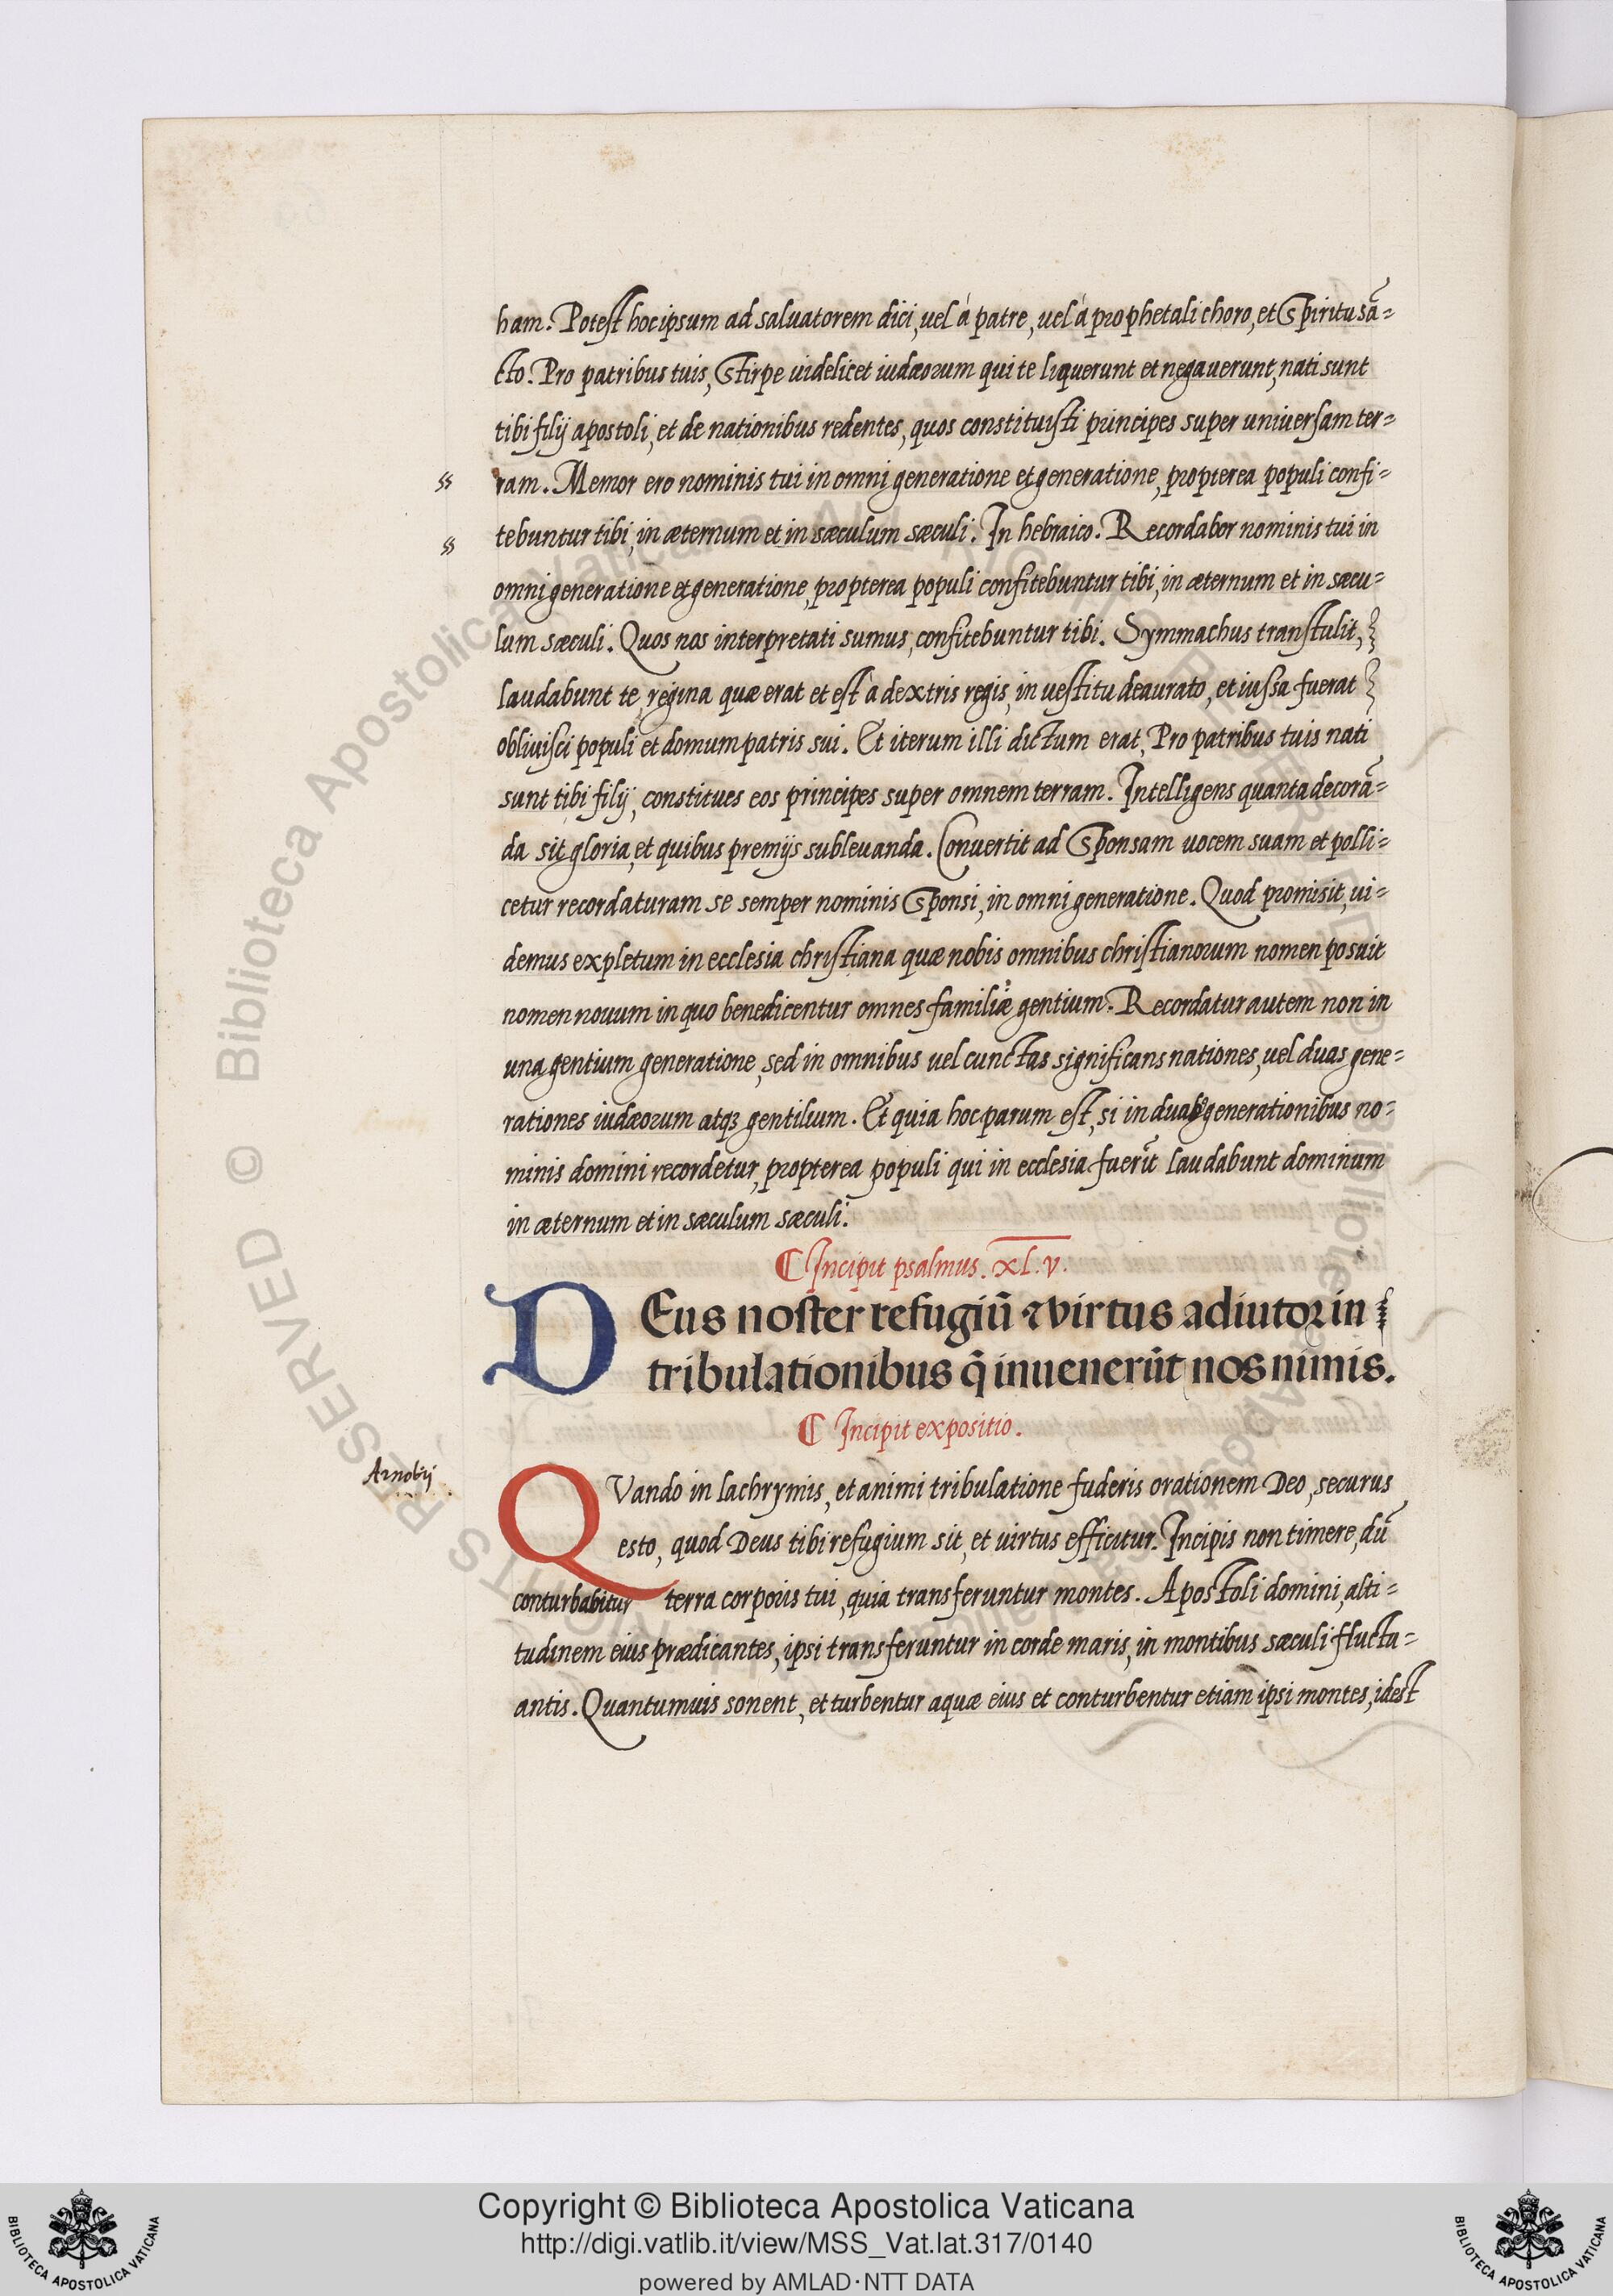 ham. Potest hoc ipsum ad saluatorem dici, uel à patre, uel à prophetali choro, et Spiritu sã=
cto. Pro patribus tuis, Stirpe uidelicet iudæorum qui te liquerunt et negauerunt, nati sunt
tibi filij apostoli, et de nationibus redentes, quos constituisti principes super uniuersam ter=
ss ram. Memor ero nominis tui in omni generatione et generatione, propterea populi confi=
ss tebuntur tibi, in æternum et in sæculum sæculi. In hebraico. Recordabor nominis tui in
omni generatione et generatione, propterea populi confitebuntur tibi, in æternum et in sæcu=
lum sæculi. Quos nos interpretati sumus, confitebuntur tibi. Symmachus transtulit,
laudabunt te, regina quæ erat et est à dextris regis, in uestitu deaurato, et iussa fuerat
obliuisci populi et domum patris sui. Et iterum illi dictum erat, Pro patribus tuis nati
sunt tibi filij, constitues eos principes super omnem terram. Intelligens quanta decorã=
da sit gloria, et quibus premijs subleuanda. Conuertit ad Sponsam uocem suam et polli=
cetur recordaturam se semper nominis Sponsi, in omni generatione. Quod promisit, ui=
demus expletum in ecclesia christiana quæ nobis omnibus christianorum nomen posuit
nomen nouum in quo benedicentur omnes familiæ gentium. Recordatur autem non in
una gentium generatione, sed in omnibus uel cunctas significans nationes, uel duas gene=
rationes iudæorum atqꝫ gentilium. Et quia hoc parum est, si in duabꝰ generationibus no=
minis domini recordetur, propterea populi qui in ecclesia fuerũt laudabunt dominum
in æternum et in sæculum sæculi.
¶ Incipit psalmus. xl. v.
DEus noster refugiũ ⁊ virtus adiutor in
tribulationibus q̃ inuenerũt nos nimis.
¶ Incipit expositio.
Arnobij
QVando in lachrymis, et animi tribulatione fuderis orationem Deo, securus
esto, quod Deus tibi refugium sit, et uirtus efficitur. Incipis non timere, dũ
conturbabitur terra corporis tui, quia transferuntur montes. Apostoli domini, alti=
tudinem eius prædicantes, ipsi transferuntur in corde maris, in montibus sæculi fluctu=
antis. Quantumuis sonent, et turbentur aquæ eius et conturbentur etiam ipsi montes, idest
© Biblioteca Apostolica Vaticana ALL RIGHTS RESERVED
Copyright © Biblioteca Apostolica Vaticana
http://digi.vatlib.it/view/MSS_Vat.lat.317/0140
powered by AMLAD·NTT DATA
BIBLIOTECA APOSTOLICA VATICANA
BIBLIOTECA APOSTOLICA VATICANA